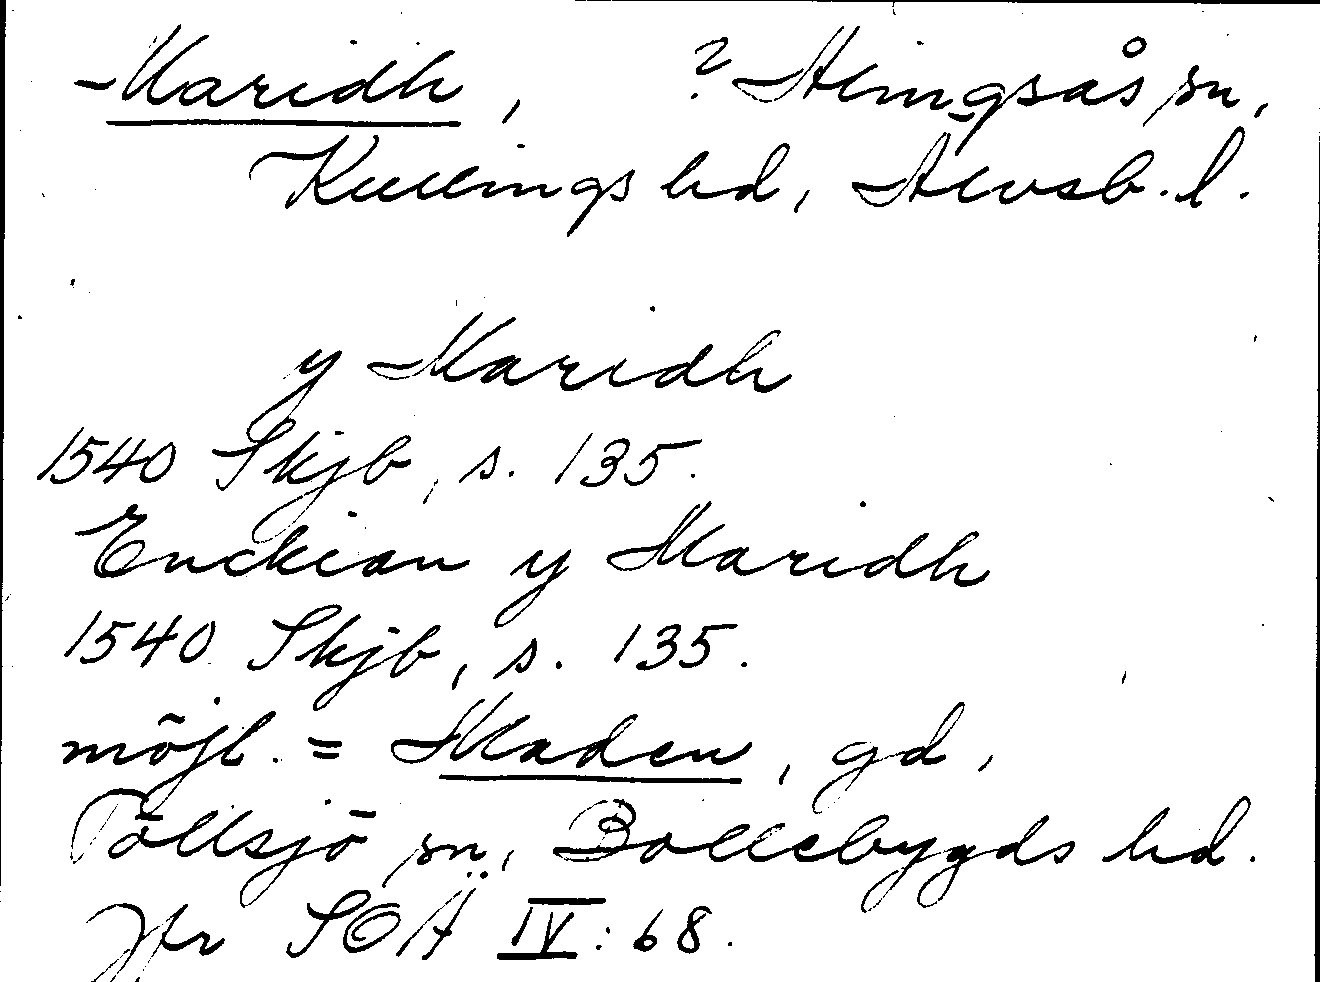 Maridh, ? Alingsås sn,
Kullings hd, Älvsb. l.
y Maridh
1540 Skjb, s. 135.
Enckian y Maridh
1540 Skjb, s. 135.
möjl. = Maden, gd,
Töllsjö sn, Bollebygds hd.
Jfr SOÄ IV: 68.